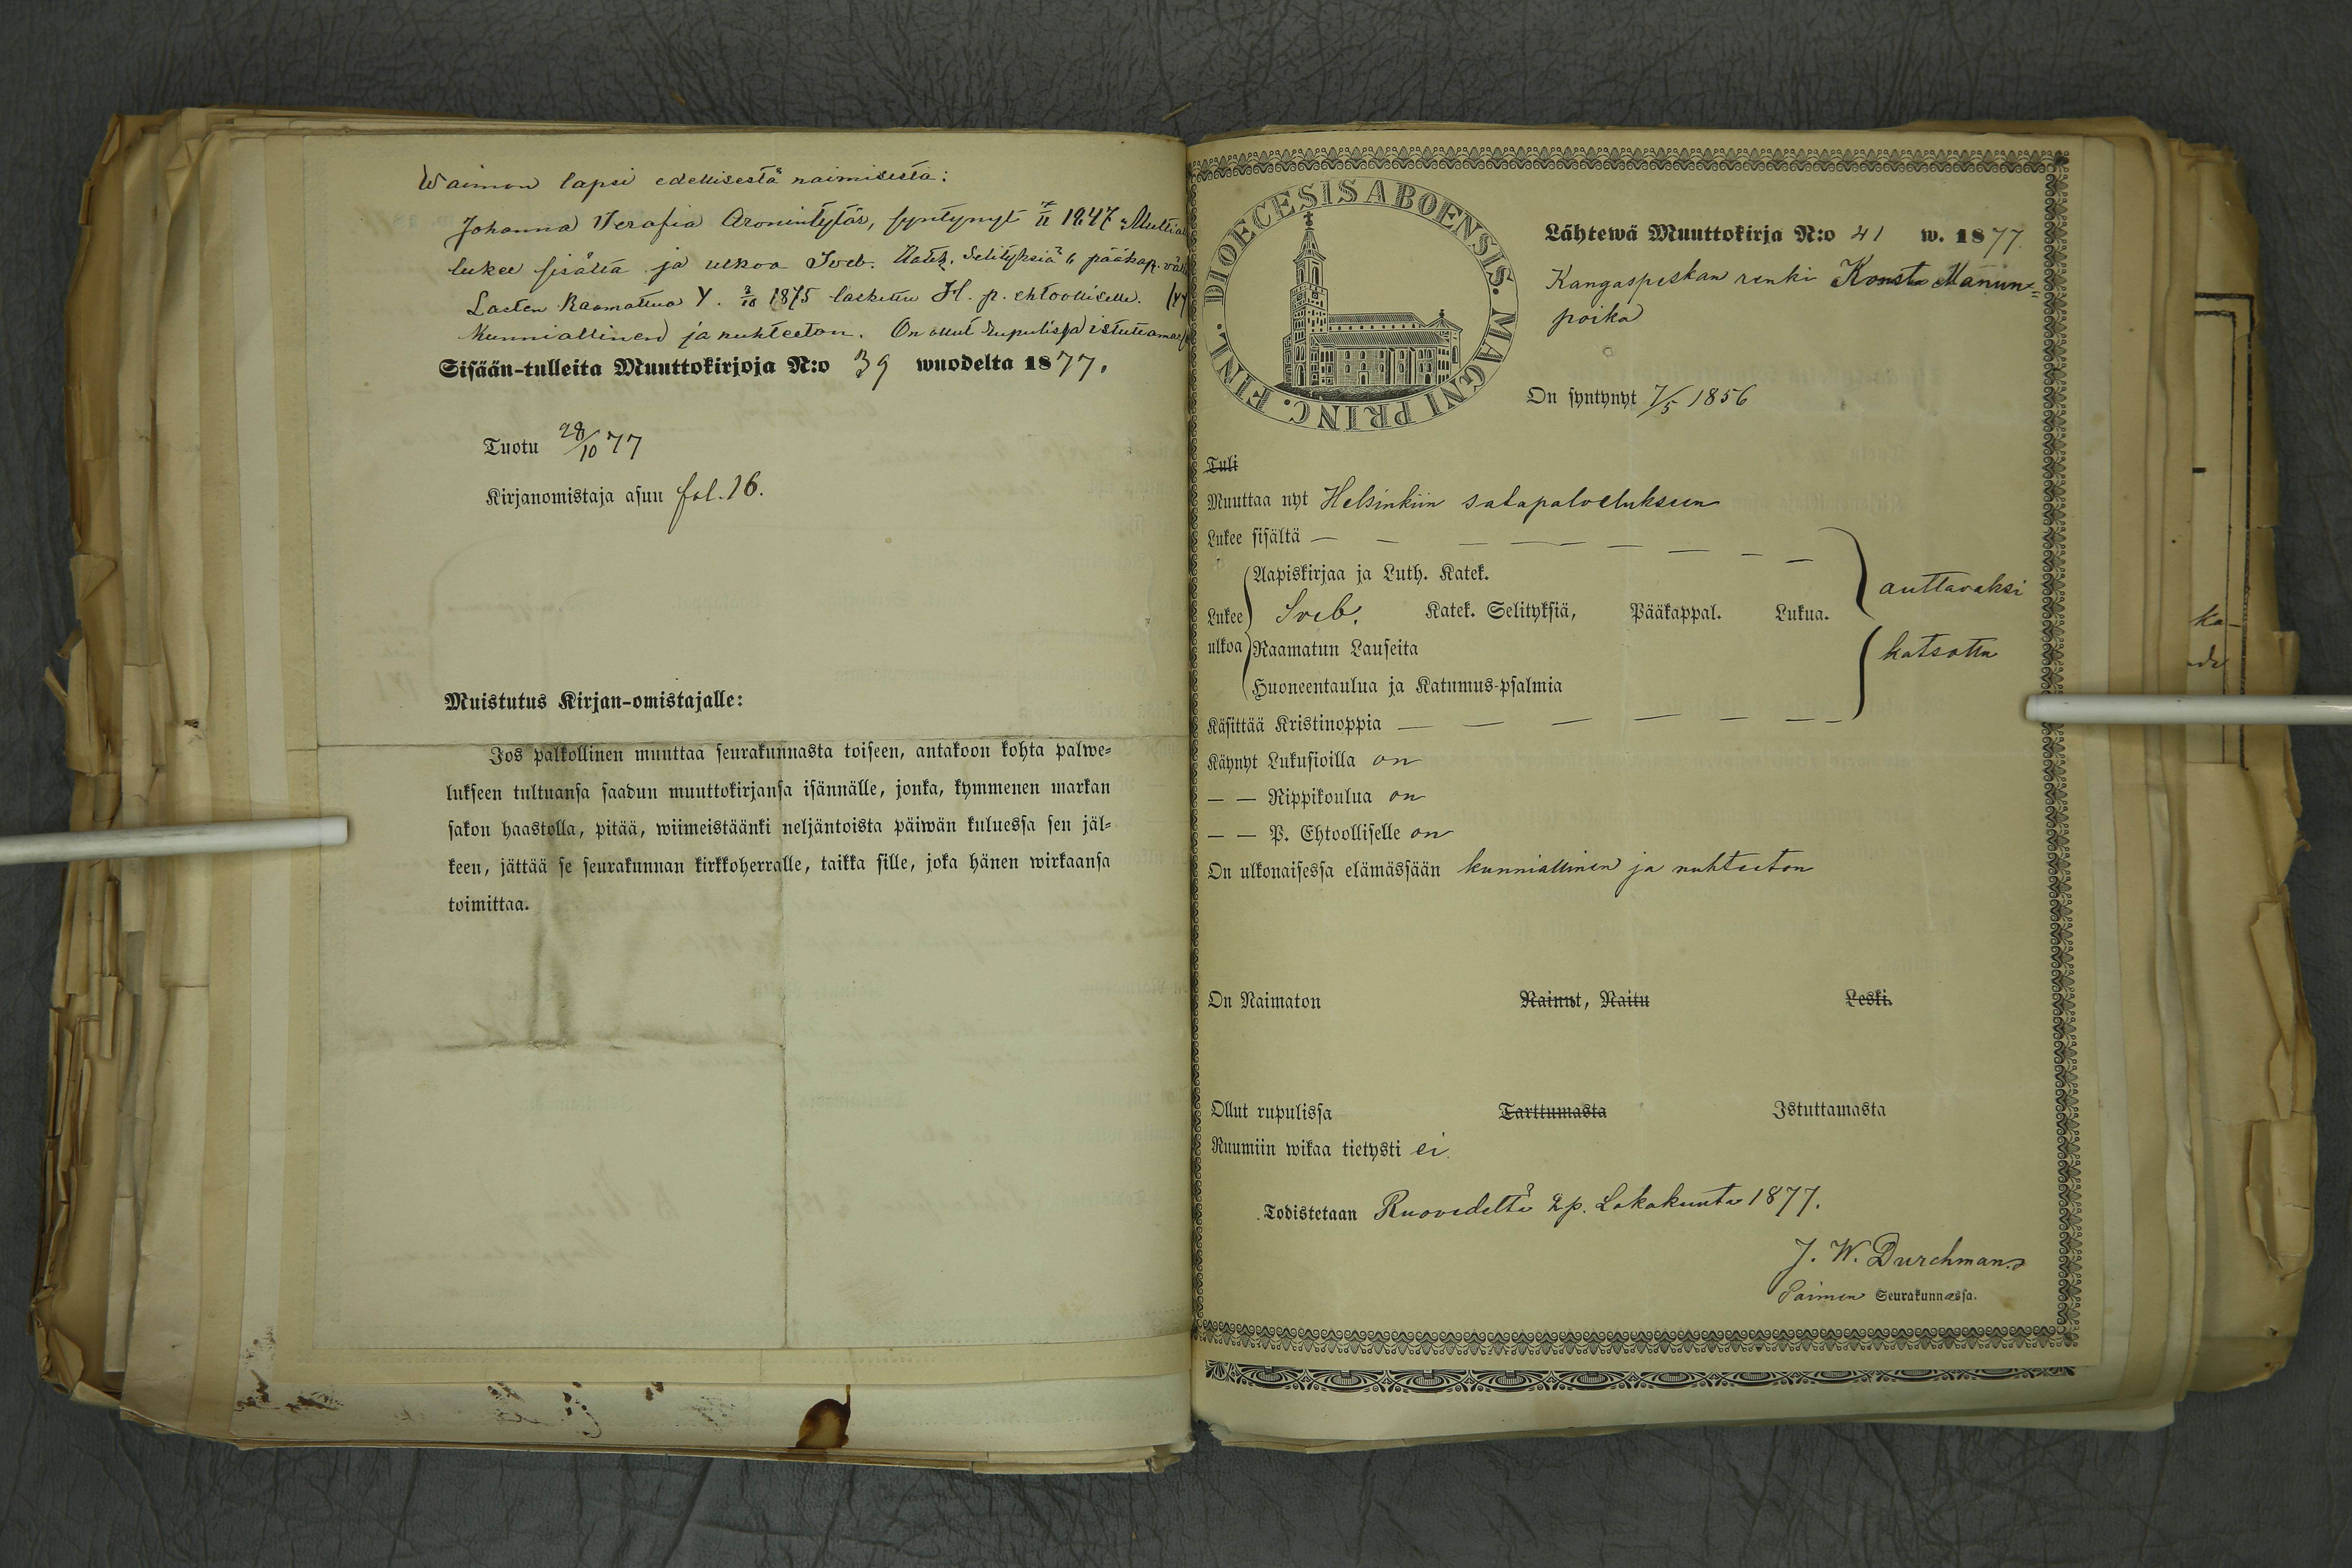 Waimon lapsi edellisestä naimisesta:
Johanna Serafia Aronintytär, syntynyt 1847
lukee sisältä ja ulkoa Sveb. Katek. Selityksiä 6 pääkap.
Lasten Raamattua Y. 3/10 1875 laskettu H. p. ehtoolliselle.
Kunniallinen ja nuhteeton. On ollut rupulissa istuttamas
Sisään-tulleita Muuttokirjoja N:o 39 wuodelta 1877.
Tuotu 28/10 77
Kirjanomistaja asuu fol. 16.
Muistutus Kirjan-omistajalle:
Jos palkollinen muuttaa seurakunnasta toiseen, antakoon kohta palwe-
lukseen tultuansa saadun muuttokirjansa isännälle, jonka, kymmenen markan
sakon haastolla, pitää, wiimeistäänki neljäntoista päiwän kuluessa sen jäl-
keen, jättää se seurakunnan kirkkoherralle, taikka sille, joka hänen wirkaansa
toimittaa.
DIOECESIS ABOENSIS. MAGNI PRINC. FINL.
Lähtewä Muuttokirja N:o 41 w. 1877.
Kangaspeskan renki Konsta Manun-
poika
On syntynyt 7/5 1856
Tuli
Muuttaa nyt Helsinkiin sotapalvelukseen
Lukee sisältä — — — — — — — —
Lukee ulkoa
Aapiskirjaa ja Luth. Katek.
Sveb. Katek. Selityksiä, Pääkappal. Lukua.
auttavaksi
Raamatun Lauseita
katsottu
Huoneentaulua ja Katumus-psalmia
Käsittää Kristinoppia — — — — — — —
Käynyt Lukusioilla on
— — Rippikoulua on
— — P. Ehtoolliselle on
On ulkonaisessa elämässään kunniallinen ja nuhteeton
On Naimaton Nainut, Naitu Leski.
Ollut rupulissa Tarttumasta Istuttamasta
Ruumiin wikaa tietysti ei.
Todistetaan Ruovedeltä 2 p. Lokakuuta 1877.
J. W. Durchman.
Paimen Seurakunnassa.
ka-